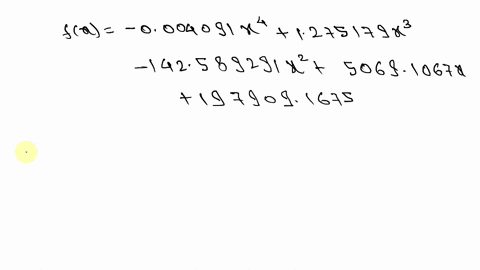 f(x) = -0.004091x⁴ + 1.275179x³
-142.589291x² + 5069.1067x
+197909.1675